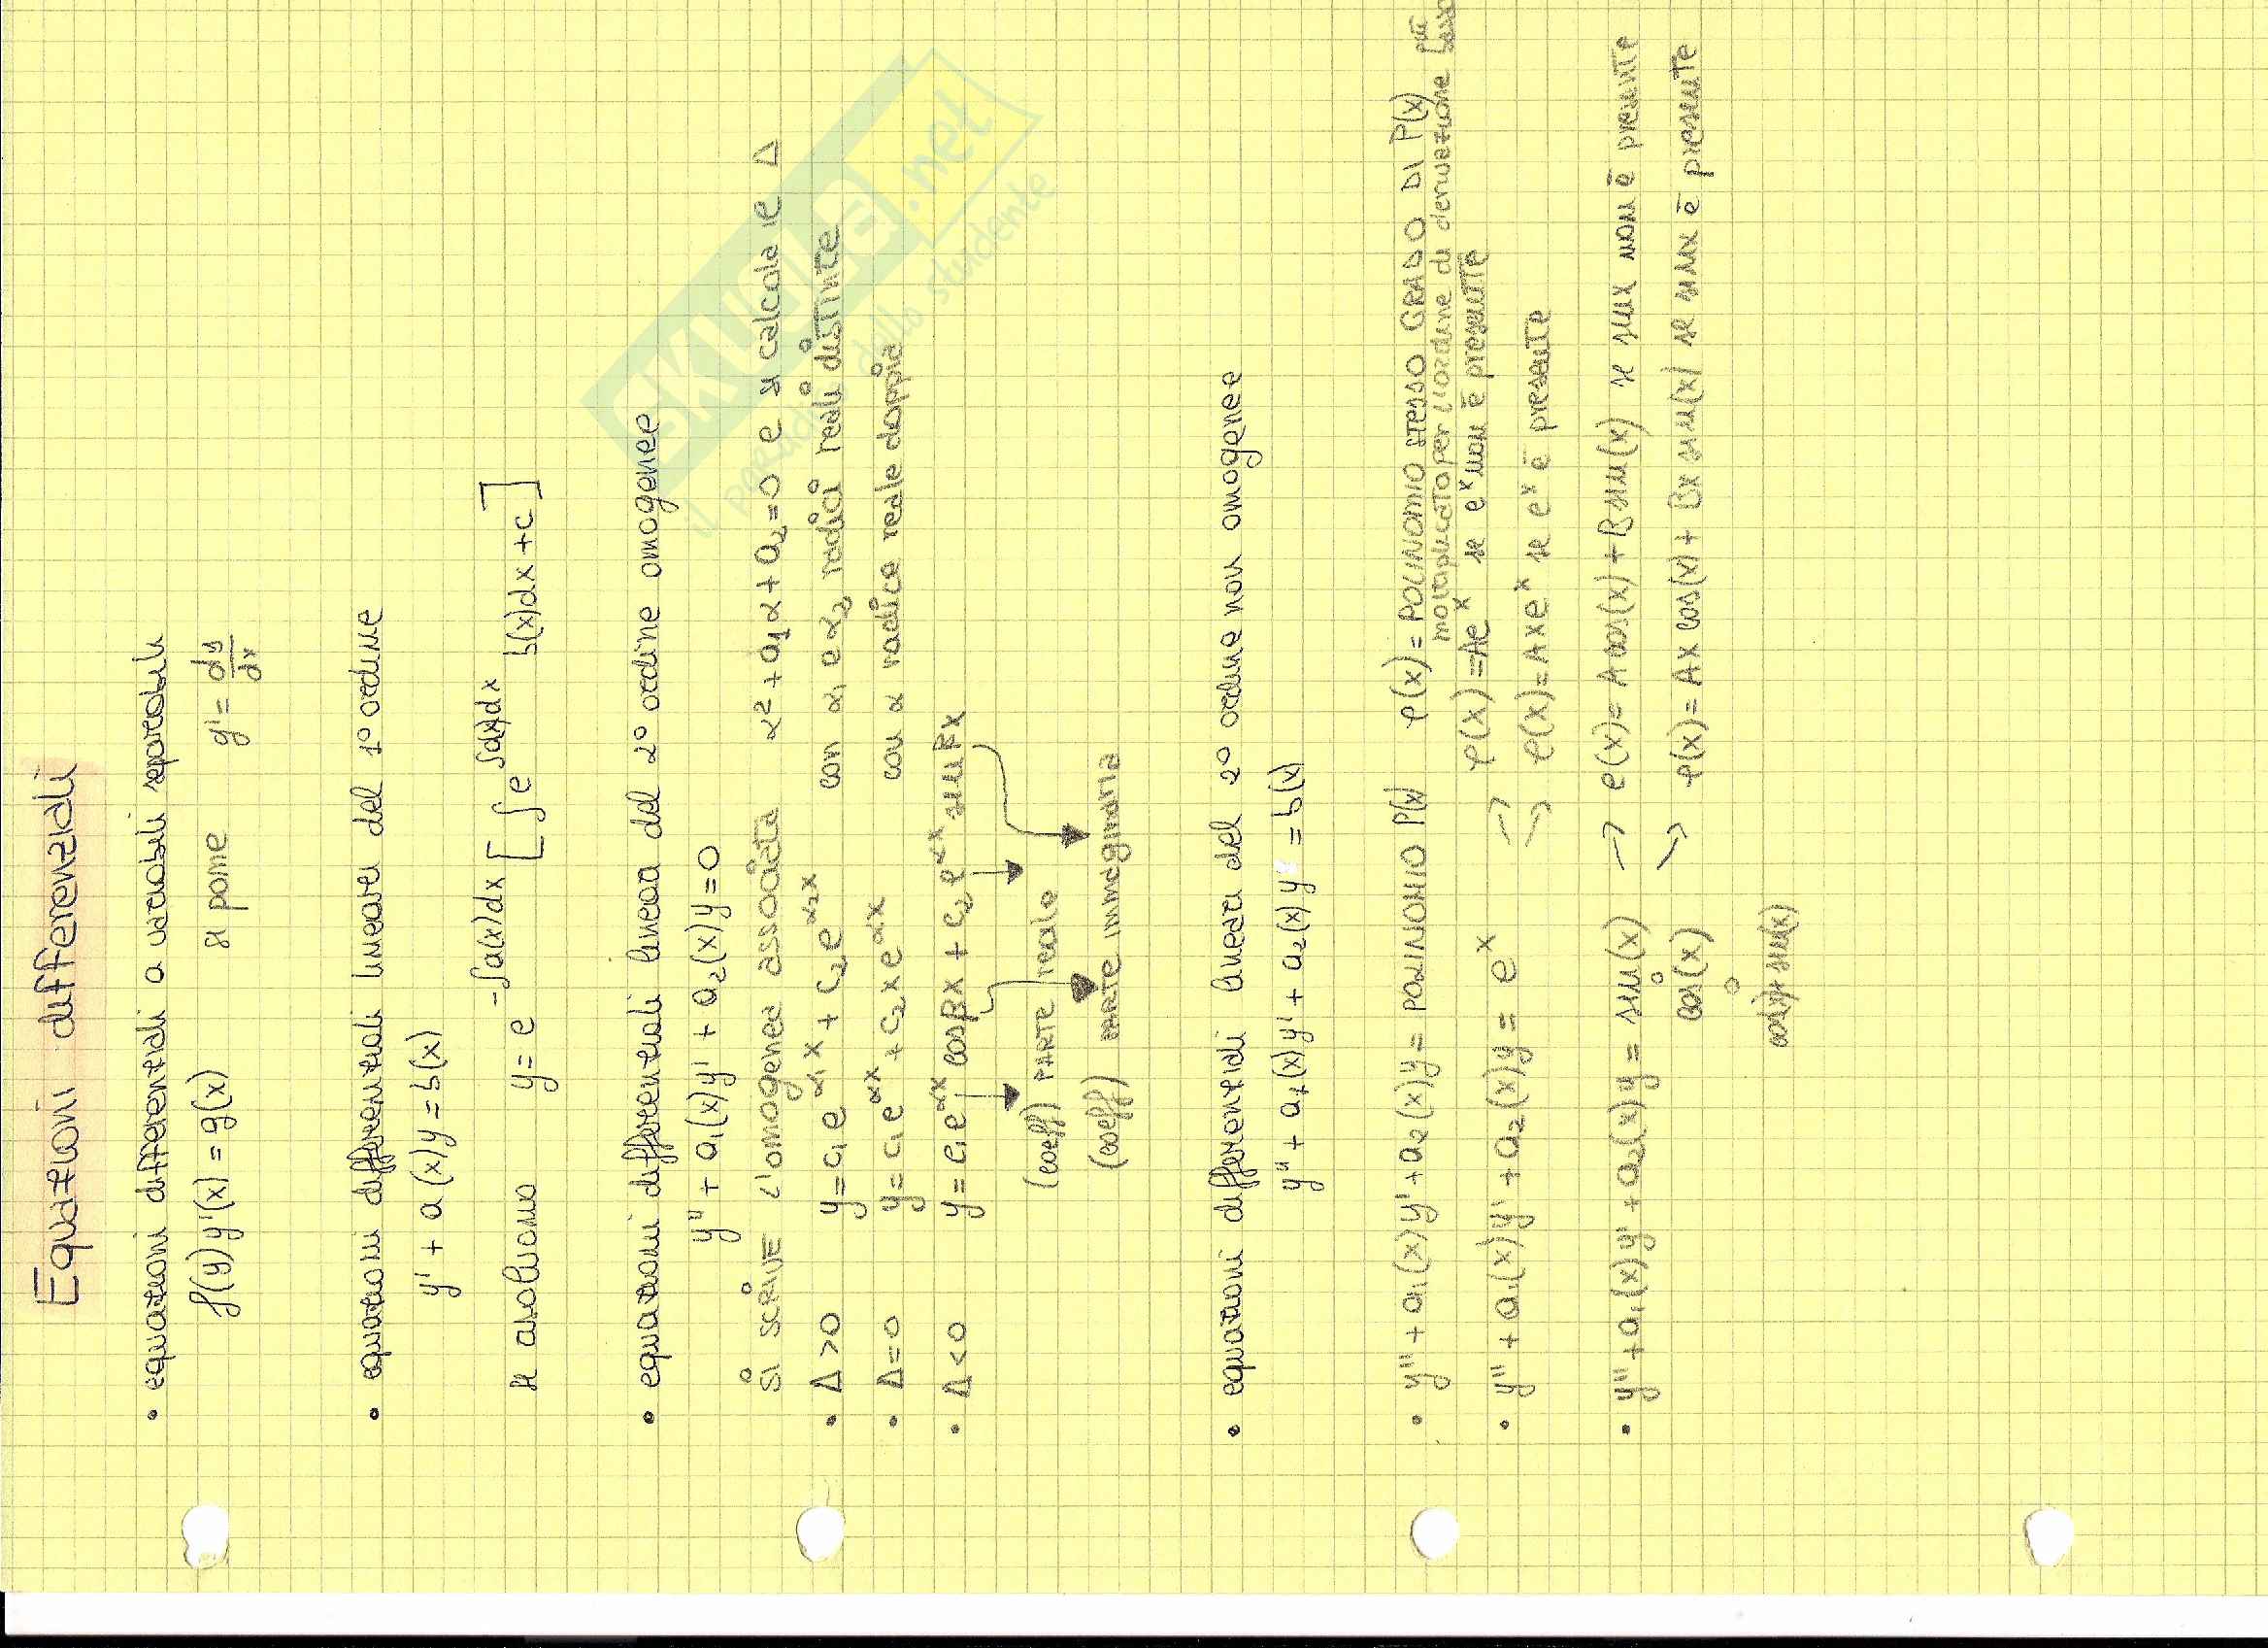 Equazioni differenziali
• equazioni differenziali a variabili separabili
f(y) y'(x) = g(x) si pone y' = dy/dx
• equazioni differenziali lineari del 1° ordine
y' + a(x)y = b(x)
si risolvono y = e^{-∫a(x)dx} [∫e^{∫a(x)dx} b(x)dx + c]
• equazioni differenziali lineari del 2° ordine omogenee
y'' + a₁(x)y' + a₂(x)y = 0
SI SCRIVE L'omogenea associata α² + a₁α + a₂ = 0 e si calcola il Δ
• Δ > 0 y = c₁e^{α₁x} + c₂e^{α₂x} con α₁ e α₂ radici reali distinte
• Δ = 0 y = c₁e^{αx} + c₂xe^{αx} con α radice reale doppia
• Δ < 0 y = c₁e^{αx} cosβx + c₂e^{αx} sinβx
(coeff) PARTE reale
(coeff) PARTE immaginaria
• equazioni differenziali lineari del 2° ordine non omogenee
y'' + a₁(x)y' + a₂(x)y = b(x)
• y'' + a₁(x)y' + a₂(x)y = POLINOMIO P(x) φ(x) = POLINOMIO STESSO GRADO DI P(x)
moltiplicato per l'ordine di derivazione più basso
• y'' + a₁(x)y' + a₂(x)y = e^x → φ(x) = Ae^x se e^x non è presente
→ φ(x) = Axe^x se e^x è presente
• y'' + a₁(x)y' + a₂(x)y = sin(x) → φ(x) = A cos(x) + B sin(x) se sinx non è presente
o
cos(x) → φ(x) = Ax cos(x) + Bx sin(x) se sinx è presente
o
cos(x)+sin(x)
SKUOLA.net
il paradiso dello studente